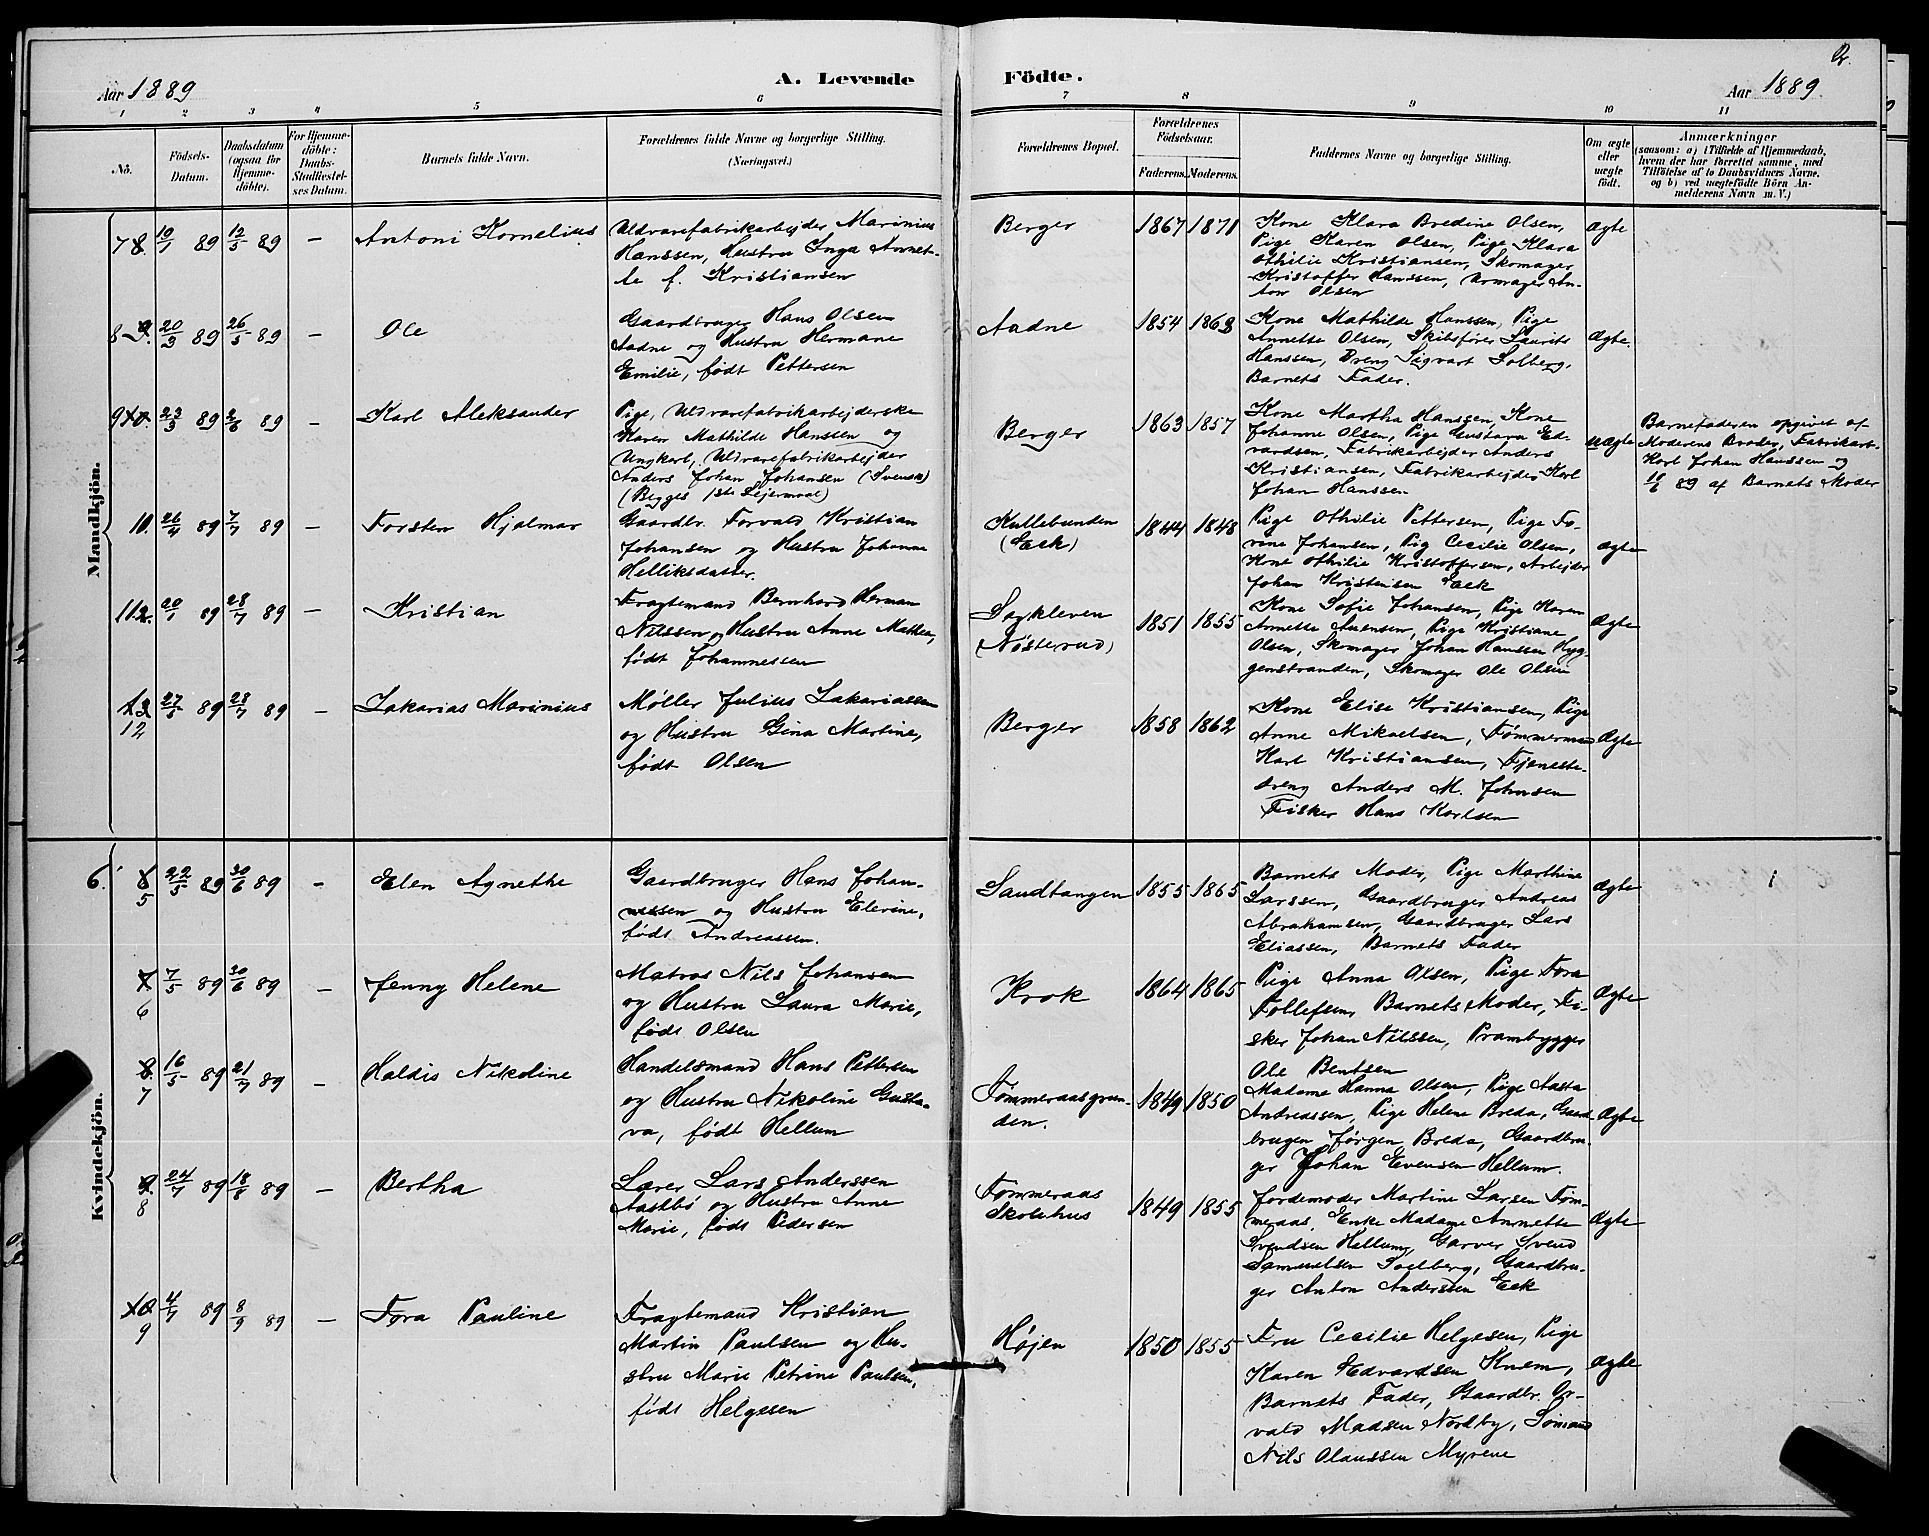 2.
Aar 1889
A. Levende Födte.
Aar 1889.
1 2 3 4 5 6 7 8 9 10 11
No.
Födsels-
Datum.
Daabsdatum
(ogsaa for
Hjemme-
döbte).
For Hjemme-
döbte:
Daabs-
Stadfæstel-
ses Datum.
Barnets fulde Navn.
Forældrenes fulde Navne og borgerlige Stilling.
(Næringsvei.)
Forældrenes Bopæl.
Forældrenes
Födselsaar.
Faderens. Moderens.
Faddernes Navne og borgerlige Stilling.
Om ægte
eller
uægte
födt.
Anmærkninger
(saasom: a) i Tilfælde af Hjemmedaab,
hvem der har forrettet samme, med
Tilföielse af to Daabsvidners Navne,
og b) ved uægtefödte Börn An-
melderens Navn m. V.)
Mandkjön.
7 8. 19/1 89 12/5 89 – Antoni Kornelius
Uldvarefabrikarbejder Marinius
Hanssen, Hustru Inga Annet-
te f. Kristiansen
Berger 1867 1871
Kone Klara Bredine Olsen,
Pige Karen Olsen, Pige Klara
Othilie Kristiansen, Skomager
Kristoffer Hanssen, Urmager An-
ton Olsen
Ægte
8 9. 20/3 89 26/5 89 – Ole
Gaardbruger Hans Olsen
Aadne og Hustru Hermane
Emilie, født Pettersen
Aadne 1854 1863
Kone Mathilde Hanssen, Pige
Annette Olsen, Skibsfører Laurits
Hanssen, Dreng Sigvart Solberg,
Barnets Fader.
Ægte.
9 10. 23/3 89 2/6 89 – Karl Aleksander
Pige, Uldvarefabrikarbejderske
Karen Mathilde Hanssen og
Ungkarl, Uldvarefabrikarbejder
Anders Johan Johansen (Svensk)
(Begges 1ste Lejermaal)
Berger 1863 1857
Kone Martha Hanssen, Kone
Johanne Olsen, Pige Gustava Ed-
vardsen, Fabrikarbejder Anders
Kristiansen, Fabrikarbejder Karl
Johan Hanssen
uægte
Barnefaderen opgivet af
Moderens Broder, Fabrikarb.
Karl Johan Hanssen og
10/6 89 af Barnets Moder
10. 26/4 89 7/7 89 – Torsten Hjalmar
Gaardbr. Torvald Kristian
Johansen og Hustru Johanne
Helliksdatter.
Kullebunden
(Eek)
1844 1848
Pige Othilie Pettersen, Pige To-
vine Johansen, Pig Cecilie Olsen,
Kone Othilie Kristoffersen, Arbejder
Johan Kristensen Eek
Ægte
11 2. 20/1 89 28/7 89 – Kristian
Fragtemand Bernhard Herman
Nilssen og Hustru Anne Mathea,
født Johannessen
Sagkleven
(Nøsterud)
1851 1855
Kone Sofie Johansen, Pige Karen
Annette Svensen, Pige Kristiane
Olsen, Skomager Johan Hanssen Hyg-
genstranden, Skomager Ole Olsen
Ægte
13
12 27/5 89 28/7 89 – Zakarias Marinius
Møller Julius Zakariassen
og Hustru Gina Martine,
født Olsen
Berger 1858 1862
Kone Elise Kristiansen, Pige
Anne Mikaelsen, Tømmermand
Karl Kristiansen, Tjeneste-
dreng Anders M. Johnsen
Fisker Hans Karlsen
Ægte
Kvindekjön.
6. 6
5 22/5 89 30/6 89 – Elen Agnethe
Gaardbruger Hans Johan-
nessen og Hustru Elevine,
født Andreassen.
Sandtangen 1855 1865
Barnets Moder, Pige Marthine
Larssen, Gaardbruger Andreas
Abrahamsen, Gaardbruger Lars
Eliassen, Barnets Fader
Ægte
7
6 7/5 89 30/6 89 – Jenny Helene
Matros Nils Johansen
og Hustru Laura Marie,
født Olsen
Krok 1864 1865
Pige Anna Olsen, Pige Tora
Tollefsen, Barnets Moder, Fi-
sker Johan Nilssen, Prambygger
Ole Bentsen
Ægte
8
7 16/5 89 21/7 89 – Haldis Nikoline
Handelsmand Hans Pettersen
og Hustru Nikoline Gusta-
va, født Hellum
Tømmeraasgrun-
den.
1849 1850
Madame Hanna Olsen, Pige Aasta
Andreassen, Pige Helene Breda, Gaard-
brugen Jørgen Breda, Gaardbru-
ger Johan Evensen Hellum.
Ægte
9
8 24/7 89 18/8 89 – Bertha
Lærer Lars Anderssen
Aastbø og Hustru Anne
Marie, født Pedersen
Tømmeraas
Skolehus
1849 1855
Jordemoder Martine Larsen Tøm-
meraas, Enke Madame Annette
Svendsen Hellum, Garver Svend
Samuelsen Solberg, Gaardbru-
ger Anton Andersen Eek
Ægte
10
9 4/7 89 8/9 89 – Tora Pauline
Fragtemand Kristian
Martin Paulsen og Hu-
stru Marie Petrine Paulsen,
født Helgesen
Højen 1850 1855
Fru Cecilie Helgesen, Pige
Karen Edvardsen Knem,
Barnets Fader, Gaardbr. Or-
vald Madsen Nordby, Sømand
Nils Olaussen Myrene
Ægte